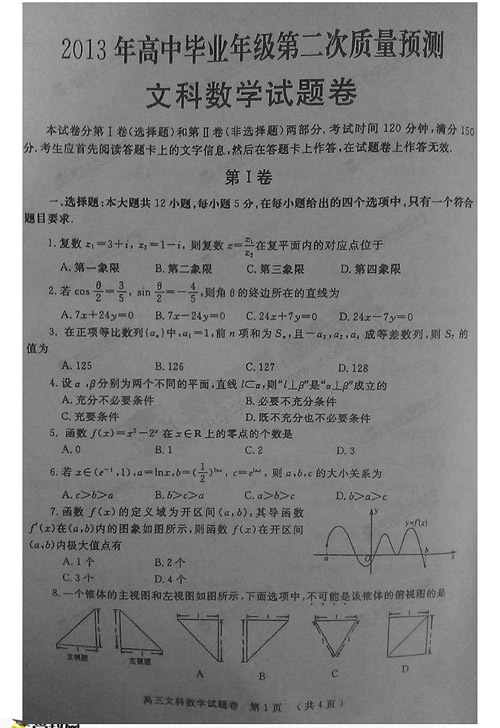 2013年高中毕业年级第二次质量预测
文科数学试题卷
本试卷分第Ⅰ卷(选择题)和第Ⅱ卷(非选择题)两部分.考试时间120分钟,满分150
分.考生应首先阅读答题卡上的文字信息,然后在答题卡上作答,在试题卷上作答无效.
第Ⅰ卷
一、选择题:本大题共12小题,每小题5分,在每小题给出的四个选项中,只有一个符合
题目要求.
1.复数z₁=3+i, z₂=1-i, 则复数z=z₁/z₂在复平面内的对应点位于
A.第一象限 B.第二象限 C.第三象限 D.第四象限
2.若cos θ/2=3/5, sin θ/2=-4/5,则角θ的终边所在的直线为
A.7x+24y=0 B.7x-24y=0 C.24x+7y=0 D.24x-7y=0
3.在正项等比数列{aₙ}中,a₁=1,前n项和为Sₙ,且-a₃,a₂,a₄成等差数列,则S₇的
值为
A.125 B.126 C.127 D.128
4.设α,β分别为两个不同的平面,直线l⊂α,则“l⊥β”是“α⊥β”成立的
A.充分不必要条件 B.必要不充分条件
C.充要条件 D.既不充分也不必要条件
5.函数f(x)=x²-2ˣ在x∈R上的零点的个数是
A.0 B.1 C.2 D.3
6.若x∈(e⁻¹,1),a=lnx,b=(1/2)^lnx, c=e^lnx, 则a,b,c的大小关系为
A.c>b>a B.b>c>a C.a>b>c D.b>a>c
7.函数f(x)的定义域为开区间(a,b),其导函数
f′(x)在(a,b)内的图象如图所示,则函数f(x)在开区间
(a,b)内极大值点有
A.1个 B.2个
C.3个 D.4个
y
y=f′(x)
a
O
b
x
8.一个锥体的主视图和左视图如图所示,下面选项中,不可能是该锥体的俯视图的是
1 1 1 1
主视图 左视图
A B C D
高三文科数学试题卷 第1页 (共4页)